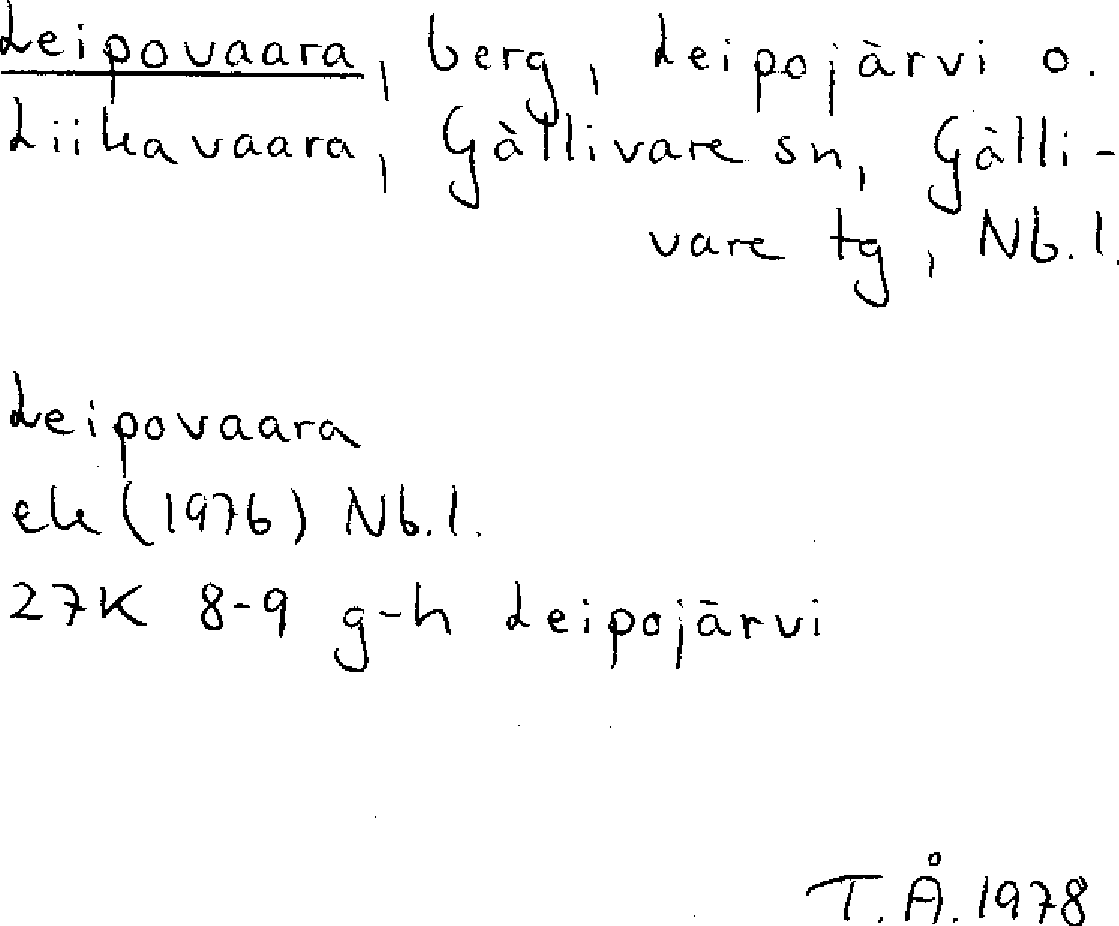 Leipovaara, berg, Leipojärvi o.
Liikavaara, Gällivare sn, Gälli-
vare tg, Nb.l.
Leipovaara
ek (1976) Nb.l.
27K 8-9 g-h Leipojärvi
T.Å. 1978